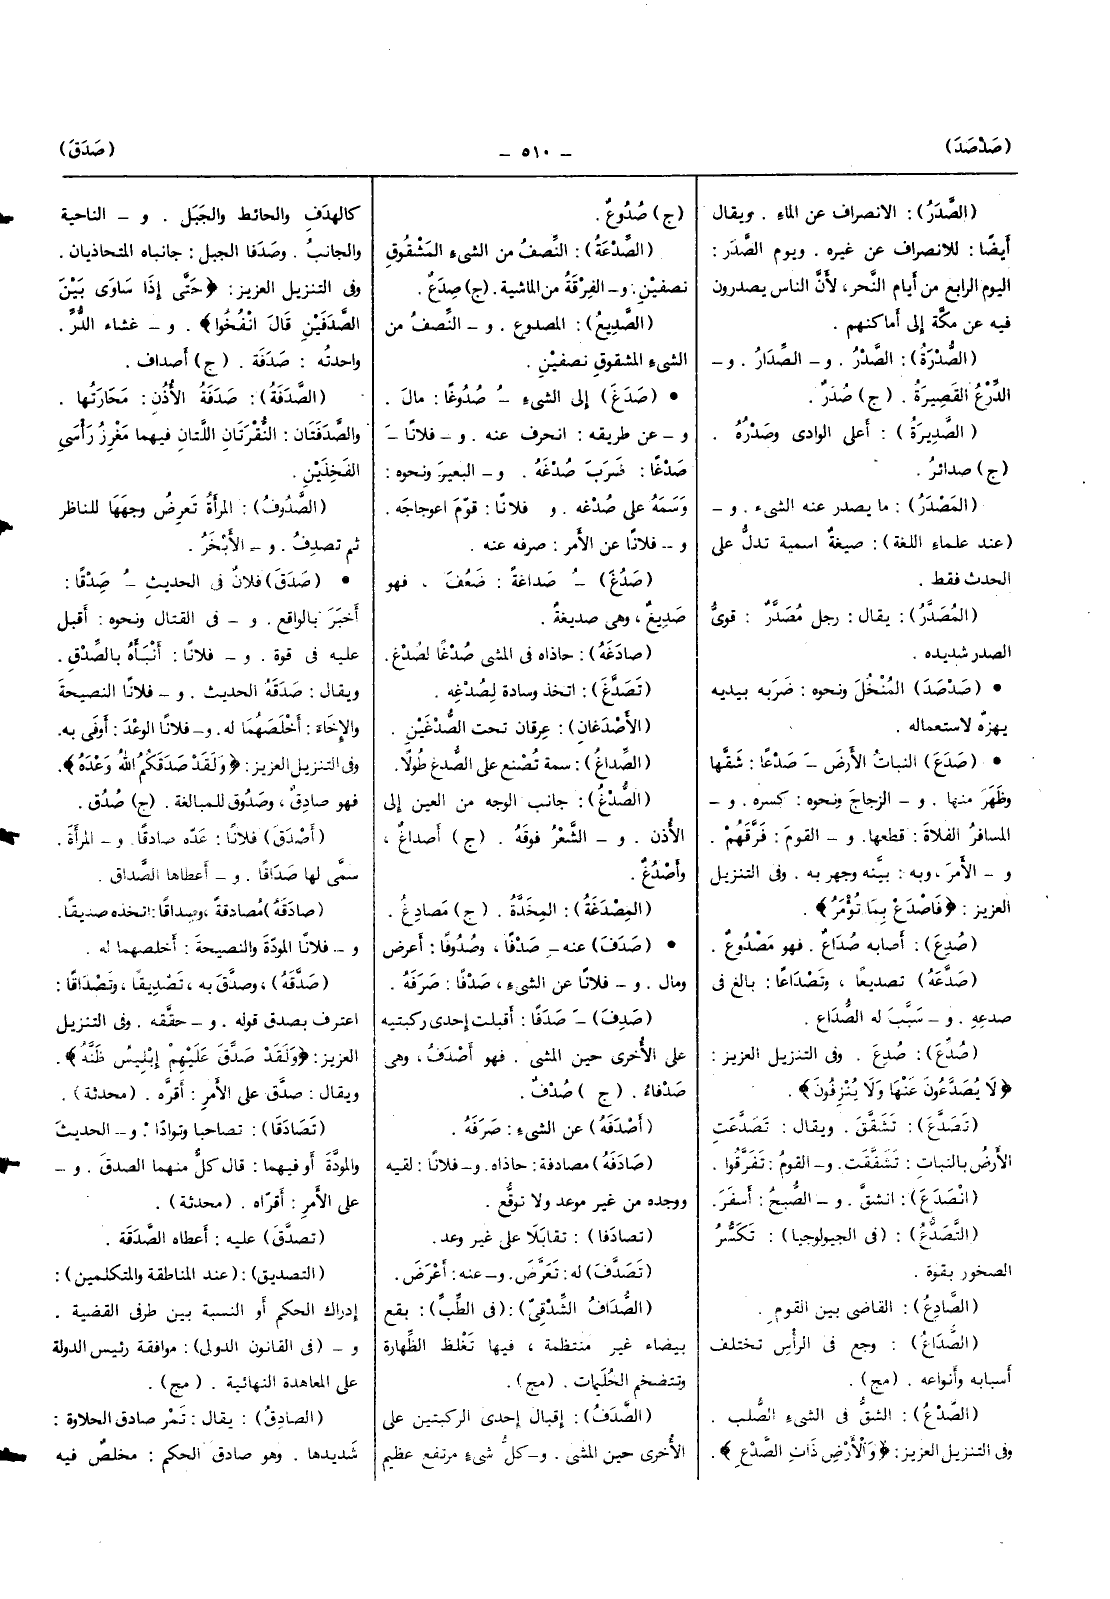 (صَدْصَدَ)
– ٥١٠ –
(صَدَقَ)
(الصَّدَرُ): الانصراف عن الماء . ويقال
أيضًا : للانصراف عن غيره . ويوم الصَّدَر :
اليوم الرابع من أيام النَّحر، لأنَّ الناس يصدرون
فيه عن مكّة إلى أماكنهم .
(الصُّدْرَةُ): الصَّدْرُ . و– الصِّدَارُ . و–
الدِّرْعُ القَصِيرَةُ . (ج) صُدَرٌ .
(الصَّدِيرَةُ) : أعلى الوادى وصَدْرُهُ .
(ج) صدائرُ .
(المَصْدَرُ): ما يصدر عنه الشىء . و–
(عند علماء اللغة): صيغةٌ اسمية تدلُّ على
الحدث فقط .
(المُصَدَّرُ): يقال : رجل مُصَدَّرٌ : قوىُّ
الصدر شديده .
• (صَدْصَدَ) المُنْخُلَ ونحوه : ضَرَبه بيديه
يهزّه لاستعماله .
• (صَدَعَ) النباتُ الأرضَ –َ صَدْعًا : شقَّها
وظَهَرَ منها . و – الزجاجَ ونحوه : كسره . و–
المسافرُ الفلاةَ : قطعها. و – القومَ : فَرَّقَهُمْ .
و – الأَمرَ ، وبه : بيَّنه وجهر به . وفى التنزيل
العزيز : ﴿فَاصْدَعْ بِمَا تُؤْمَرُ﴾ .
(صُدِعَ) : أصابه صُدَاعٌ . فهو مَصْدُوعٌ .
(صَدَّعَهُ) تصديعًا ، وتَصْدَاعًا : بالغ فى
صدعِهِ . و – سَبَّبَ له الصُّدَاع .
(صُدِّعَ) : صُدِعَ . وفى التنزيل العزيز :
﴿لَا يُصَدَّعُونَ عَنْهَا وَلَا يُنْزِفُونَ﴾ .
(تَصَدَّعَ) : تَشَقَّقَ . ويقال : تَصَدَّعَتِ
الأرضُ بالنبات : تَشَقَّقَت . و– القومُ : تَفَرَّقُوا .
(انْصَدَعَ) : انشقَّ . و – الصُّبحُ : أسفَرَ .
(التَّصَدُّعُ) : (فى الجيولوجيا) : تَكَسُّرُ
الصخور بقوّة .
(الصَّادِعُ) : القاضى بين القوم .
(الصُّدَاعُ) : وجع فى الرأس تختلف
أسبابه وأنواعه . (مج) .
(الصَّدْعُ) : الشقُّ فى الشىء الصُّلب .
وفى التنزيل العزيز : ﴿وَالْأَرْضِ ذَاتِ الصَّدْعِ﴾ .
(ج) صُدُوعٌ .
(الصِّدْعَةُ): النِّصفُ من الشىء المَشْقُوقِ
نصفيْنِ . و– الفِرْقَةُ من الماشية . (ج) صِدَعٌ .
(الصَّدِيعُ): المصدوع . و – النِّصفُ من
الشىء المشقوقِ نصفيْن .
• (صَدَغَ) إلى الشىء –ُ صُدُوغًا : مالَ .
و – عن طريقه : انحرف عنه . و – فلانًا –َ
صَدْغًا : ضَرَبَ صُدْغَهُ . و– البعيرَ ونحوه :
وَسَمَهُ على صُدْغه . و فلانًا : قوّمَ اعوجاجَه .
و – فلانًا عن الأمر : صرفه عنه .
(صَدُغَ) –ُ صَداغةً : ضَعُفَ ، فهو
صَدِيغٌ ، وهى صديغةٌ .
(صادَغَهُ): حاذاه فى المشى صُدْغًا لصُدْغ .
(تَصَدَّغَ): اتخذ وسادة لِصُدْغِه .
(الأَصْدَغان): عِرقان تحت الصُّدْغَيْنِ .
(الصِّداغُ): سمة تُصْنع على الصُّدغ طُولًا .
(الصُّدْغُ): جانب الوجه من العين إلى
الأُذن . و – الشَّعْرُ فوقَهُ . (ج) أصداغٌ ،
وأَصْدُغٌ .
(المِصْدَغَةُ): المِخَدَّةُ . (ج) مَصادِغُ .
• (صَدَفَ) عنه –ِ صَدْفًا ، وصُدُوفًا : أعرض
ومال . و – فلانًا عن الشىء ، صَدْفًا : صَرَفَهُ .
(صَدِفَ) –َ صَدَفًا : أقبلت إحدى ركبتيه
على الأُخرى حين المشى . فهو أَصْدَفُ ، وهى
صَدْفاءُ . (ج) صُدْفٌ .
(أَصْدَفَهُ) عن الشىء : صَرَفَهُ .
(صَادَفَهُ) مصادفة : حاذاه . و– فلانًا : لقيه
ووجده من غير موعد ولا توقُّع .
(تصادَفا) : تقابَلَا على غير وعد .
(تَصَدَّفَ) له : تَعَرَّضَ . و– عنه : أَعْرَضَ .
(الصُّدَافُ الشِّدْقىّ) : (فى الطِّبّ) : بقع
بيضاء غير منتظمة ، فيها تَغْلظ الظِّهارة
وتتضخم الحُلَيمات . (مج) .
(الصَّدَفُ) : إقبال إحدى الركبتين على
الأُخرى حين المشى . و– كلُّ شىءٍ مرتفع عظيم
كالهدَفِ والحائط والجَبَل . و – الناحية
والجانبُ . وصَدَفا الجبل : جانباه المتحاذيان .
وفى التنزيل العزيز : ﴿حَتَّى إِذَا سَاوَى بَيْنَ
الصَّدَفَيْنِ قَالَ انْفُخُوا﴾ . و – غشاء الدُّرِّ .
واحدتُه : صَدَفَة . (ج) أصداف .
(الصَّدَفَةُ): صَدَفَةُ الأُذُنِ : مَحَارَتُها .
والصَّدَفَتَان : النُّقْرَتَانِ اللَّتانِ فيهما مَغْرِزُ رَأْسَىِ
الفَخِذَيْنِ .
(الصَّدُوفُ): المرأَةُ تَعرِضُ وجهَهَا للناظر
ثم تصدِفُ . و – الأَبْخَرُ .
• (صَدَقَ) فلانٌ فى الحديثِ –ُ صِدْقًا :
أخبَرَ بالواقع . و – فى القتال ونحوه : أقبل
عليه فى قوة . و – فلانًا : أَنْبَأَهُ بالصِّدْقِ .
ويقال : صَدَقَهُ الحديث . و – فلانًا النصيحةَ
والإخَاءَ : أَخْلَصَهُما له. و– فلانًا الوعْدَ : أَوفَى به.
وفى التنزيل العزيز : ﴿وَلَقَدْ صَدَقَكُمُ اللهُ وَعْدَهُ﴾.
فهو صادِقٌ ، وصَدُوق للمبالغة . (ج) صُدُق .
(أَصْدَقَ) فلانًا : عَدّه صادقًا . و– المرأَةَ .
سمَّى لها صَدَاقًا . و – أعطاها الصَّداق .
(صادَقَهُ) مُصادقةً ، وصِداقًا : اتخذه صديقًا .
و – فلانًا المودّةَ والنصيحةَ : أخلصهما له .
(صَدَّقَهُ) ، وصدَّق به ، تَصْدِيقاً ، وتَصْدَاقًا :
اعترف بصدق قوله . و – حقَّقه . وفى التنزيل
العزيز : ﴿وَلَقَدْ صَدَّقَ عَلَيْهِمْ إِبْلِيسُ ظَنَّهُ﴾ .
ويقال : صدَّق على الأمرِ : أقرَّه . (محدثة) .
(تَصَادَقَا) : تصاحبا وتوادَّا . و– الحديثَ
والمودّةَ أو فيهما : قال كلٌّ منهما الصدقَ . و –
على الأمرِ : أقرّاه . (محدثة) .
(تصدَّقَ) عليه : أعطاه الصَّدَقَة .
(التصديق) : (عند المناطقة والمتكلمين) :
إدراك الحكم أو النسبة بين طرفى القضية .
و – (فى القانون الدولى) : موافقة رئيس الدولة
على المعاهدة النهائية . (مج) .
(الصادِقُ) : يقال : تَمْر صادق الحلاوة :
شَديدها . وهو صادق الحكم : مخلصٌ فيه